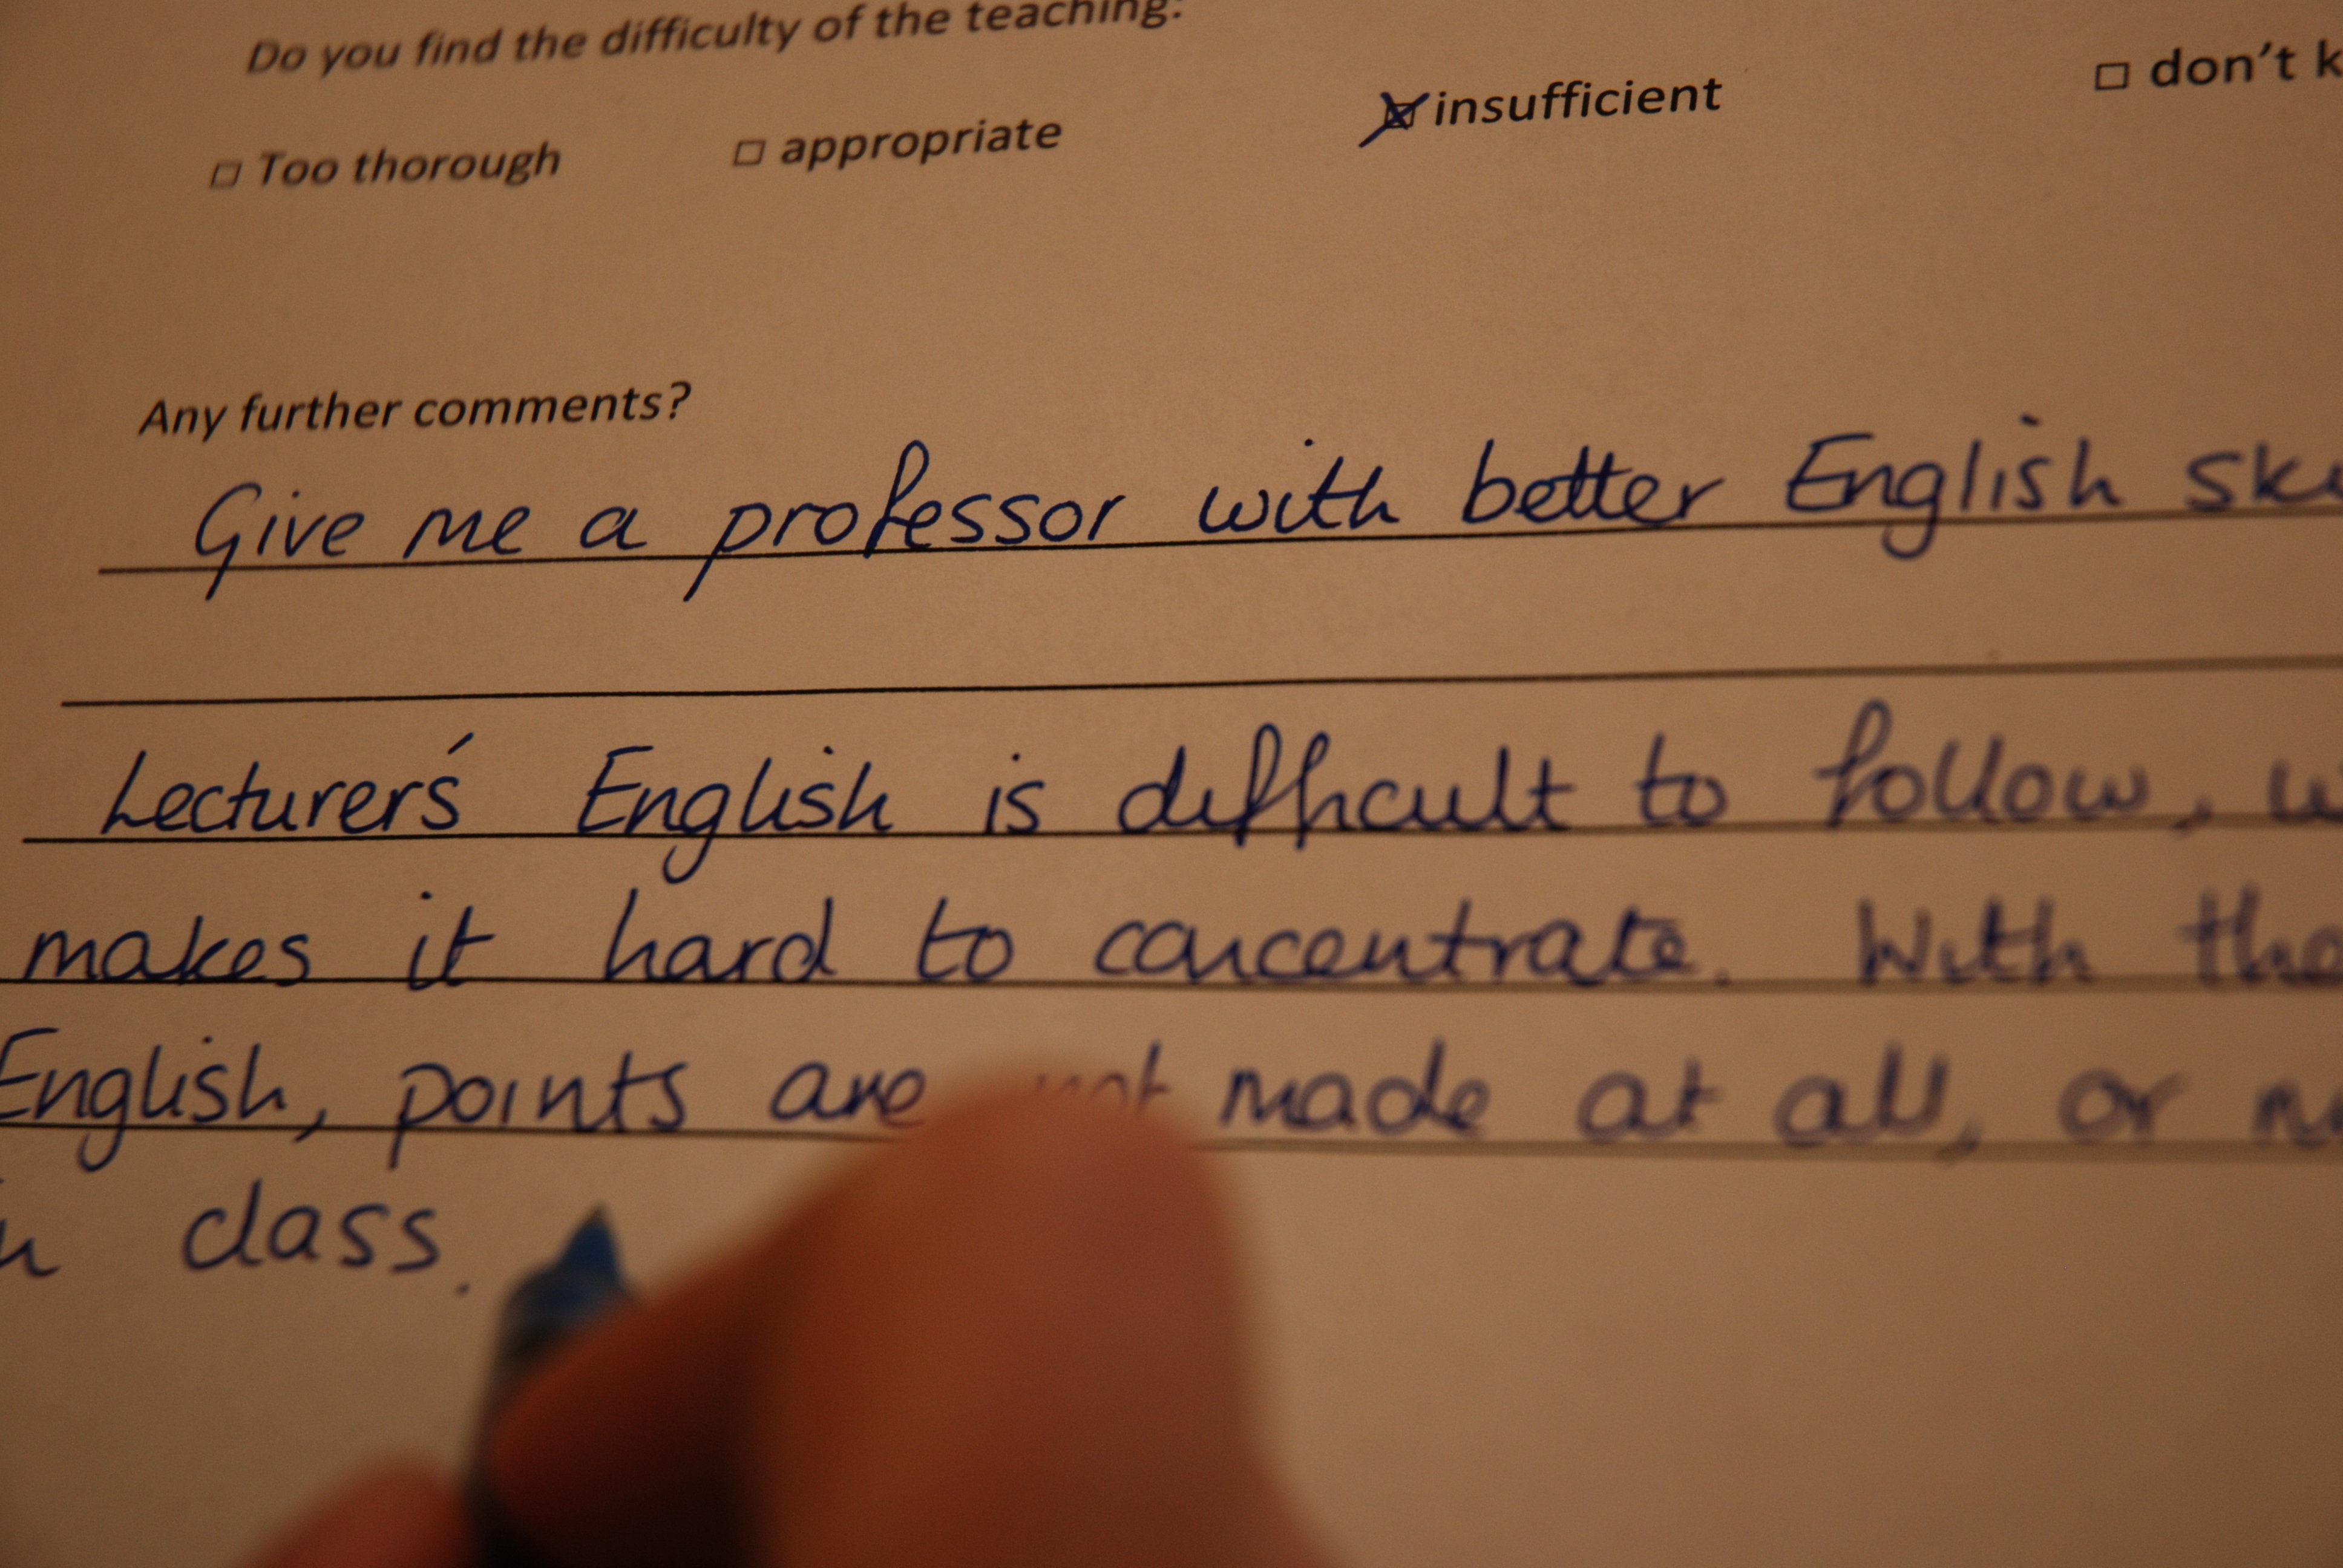 Do you find the difficulty of the teaching:
Too thorough appropriate insufficient don't
Any further comments?
Give me a professor with better English
Lecturer's English is difficult to follow,
makes it hard to concentrate. With
English, points are not made at all, or
class.